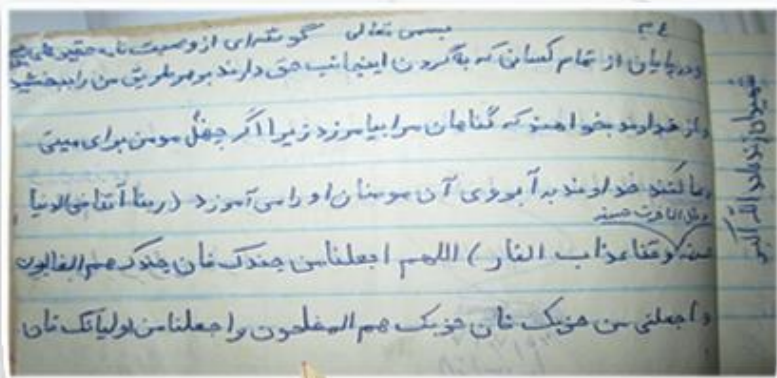 بسمی تعالی گوشه‌ای از وصیت نامه
و در پایان از تمام کسانی که به گردن اینجانب حق دارند بهر طریق من را ببخشید
و از خداوند بخواهند که گناهان مرا بیامرزد زیرا اگر چهل مومن برای میتی
دعا کنند خداوند به آبروی آن مومنان او را می آمرزد (ربنا آتنا فی الدنیا
حسنه و فی الآخرت حسنه
وقنا عذاب النار) اللهم اجعلنا من جندک فان جندک هم الغالبون
واجعلنی من حزبک فان حزبک هم المفلحون واجعلنا من اولیائک فان
شهیدان زنده‌اند الله اکبر